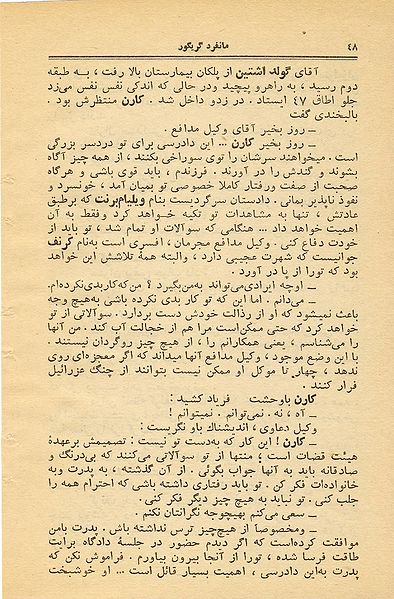 ۴۸
مانفرد گریگور
آقای گولد اشتین از پلکان بیمارستان بالا رفت ، بــه طبقه
دوم رسید ، به راهرو پیچید ودر حالی که اندکی نفس نفس میزد
جلو اطاق ۴۷ ایستاد . در زدو داخل شد . کارن منتظرش بود .
بالبخندی گفت
ــ روز بخیر آقای وکیل مدافع .
ــ روز بخیر کارن ... این دادرسی برای تو دردسر بزرگی
است . میخواهند سرشان را توی سوراخی بکنند ، از همه چیز آگاه
بشوند و گندش را در آورند . فرزندم ، باید قوی باشی و هرگاه
صحبت از صفت ورفتار کاملا خصوصی تو بمیان آمد ، خونسرد و
نفوذ ناپذیر بمانی . دادستان سرگردیست بنام ویلیام‌برنت که برطبق
عادتش ، تنها به مشاهدات تو تکیه خــواهد کــرد وفقط به آن
اهمیت خواهد داد ... هنگامی که سوآلات او تمام شد ، تو باید از
خودت دفاع کنی . وکیل مدافع مجرمان ، افسری است به‌نام گرنف
جوانیست که شهرت عجیبی دارد ، والبته همهٔ تلاشش این خواهد
بود که تورا از پا در آورد .
ــ اوچه ایرادی‌می‌تواند به‌من‌بگیرد ؟ من‌که‌کاربدی‌نکرده‌ام.
ــ می‌دانم . اما این که تو کار بدی نکرده باشی به‌هیچ وجه
باعث نمیشود که او از رذالت خودش دست بردارد . سوآلاتی از تو
خواهد کرد که حتی ممکن‌است مرا هم از خجالت آب کند . من آنها
را می‌شناسم ، یعنی همکارانم را ، از هیچ چیز روگردان نیستند .
با این وضع موجود ، وکیل مدافع آنها میداند که اگر معجزه‌ای روی
ندهد ، چهار تا موکل او ممکن نیست بتوانند از چنگ عزرائیل
فرار کنند .
کارن باوحشت فریاد کشید :
ــ آه ، نه . نمی‌توانم . نمیتوانم !
وکیل دعاوی ، اندیشناك باو نگریست :
ــ کارن ! این کار که به‌دست تو نیست : تصمیمش برعهدهٔ
هیئت قضات است ؛ منتها از تو سوآلاتی می‌کنند که بی‌درنگ و
صادقانه باید به آنها جواب بگوئی . از آن گذشته ، به پدرت وبه
خانواده‌ات فکر کن . تو باید رفتاری داشته باشی که احترام همه را
جلب کنی . تو نباید به هیچ چیز دیگر فکر کنی .
ــ سعی می‌کنم بهیچوجه نگرانتان نکنم .
ــ ومخصوصا از هیچ‌چیز ترس نداشته باش . پدرت بامن
موافقت کرده‌است که اگر دیدم حضور در جلسهٔ دادگاه برایت
طاقت فرسا شده ، تورا از آنجا بیرون بیاورم . فراموش نکن که
پدرت به‌این دادرسی ، اهمیت بسیار قائل است ... او خوشبخت